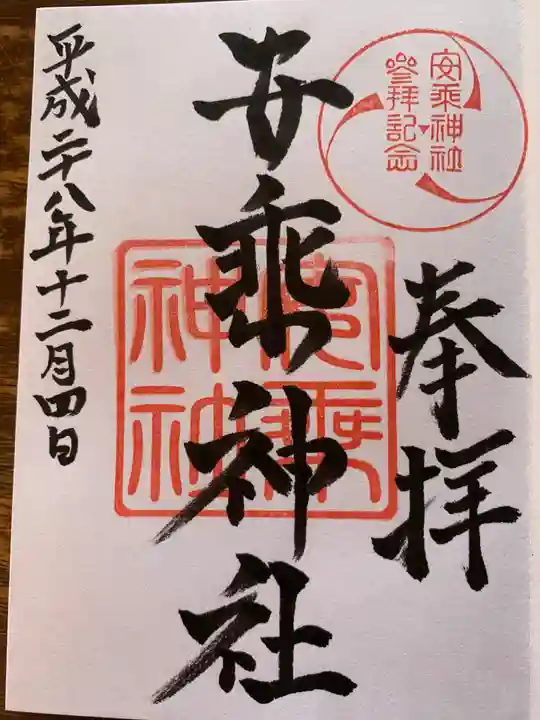 安乘神社
參拝記念
奉拝
安乗神社
安乗
神社
平成二十八年十二月四日